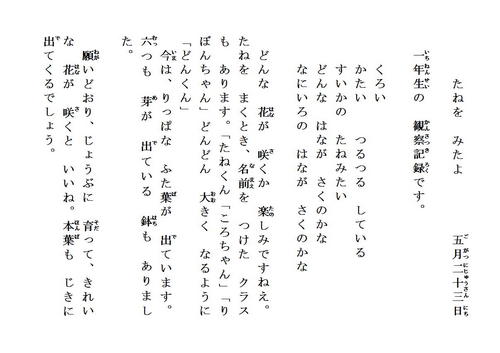 たねを　みたよ　　五月二十三日
一年生の　観察記録です。
くろい
かたい　つるつる　している
すいかの　たねみたい
どんな　はなが　さくのかな
なにいろの　はなが　さくのかな
どんな　花が　咲くか　楽しみですねえ。
たねを　まくとき、名前を　つけた　クラス
も　あります。「たねくん」「ころちゃん」「り
ぼんちゃん」どんどん　大きく　なるように
「どんくん」
今は、りっぱな　ふた葉が　出ています。
六つも　芽が　出ている　鉢も　ありまし
た。
願いどおり、じょうぶに　育って、きれい
な　花が　咲くと　いいね。本葉も　じきに
出てくるでしょう。